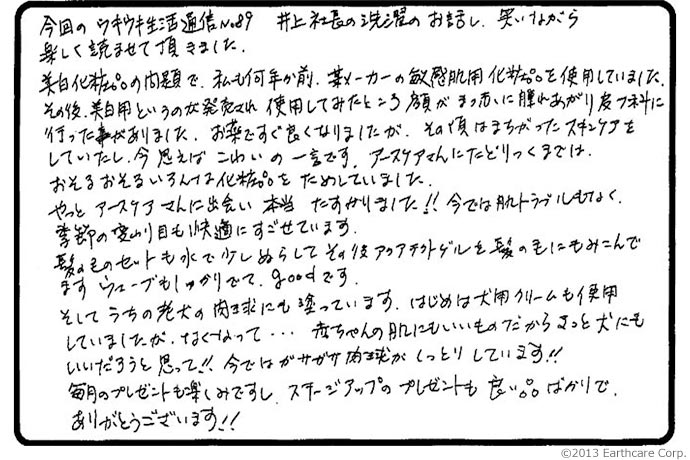 今回の ウキウキ生活通信No.89 井上社長の洗濯の お話し、笑いながら
楽しく読ませて頂きました。
美白化粧品の問題で、私も何年か前、某メーカーの敏感肌用化粧品を使用していました。
その後、美白用というのが発売され 使用してみたところ 顔が まっ赤に腫れあがり皮フ科に
行った事がありました。お薬ですぐ良くなりましたが、その頃はまちがったスキンケアを
していたし、今思えば こわいの一言です。アースケアさんにたどりつくまでは、
おそるおそるいろんな化粧品を ためしていました。
やっと アースケアさんに出会い 本当 たすかりました!! 今では肌トラブルもなく、
季節の変わり目も快適にすごせています。
髪の毛のセットも水で少しぬらして その後アクアテクトゲルを髪の毛にもみこんで
ます ウェーブもしっかりでて、goodです。
そして うちの老犬の肉球にも塗っています。はじめは犬用クリームも使用
していましたが、なくなって・・・ 赤ちゃんの肌にもいいものだからきっと犬にも
いいだろうと思って!! 今ではガサガサ肉球が しっとり しています!!
毎月のプレゼントも楽しみですし、ステージアップの プレゼントも 良い品ばかりで、
ありがとうございます!!
©2013 Earthcare Corp.